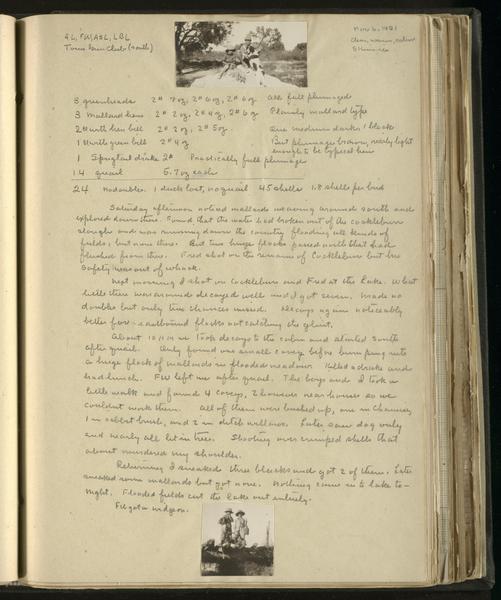 AL, FW, ASL, LBL
Tomy [Gun] Club (South)
Nov 6, 1921
Clear, warm,
8 greenheads 2# 7oz, 2# 6oz, 2# 6oz All full plumaged
3 Mallard hens 2# 2oz, 2# 4oz, 2# 6oz Plainly mallard type
2 with hen bill 2# 2oz, 2# 5oz. are medium dark, 1 black
1 with green bill 2# 4oz But plumage brown, nearly light
enough to be typical hen
1 Sprigtail drake 2# Practically full plumage
14 quail 5.7oz each
24 No doubles. 1 duck lost, no quail 45 shells 1.8 shells per bird
Saturday afternoon noticed mallards weaving around south and
explored down there. Found that the water had broken out of the cocklebur
slough and was running down the country flooding all kinds of
fields; but none there. But two huge flocks passed north that had
flushed from there. Fred shot on the remains of Cocklebur but his
safety was out of whack.
Next morning I shot on Cocklebur and Fred at the Lake. What
little there was around decoyed well and I got seven. Made no
doubles but only two chances missed. Decoys again noticeably
better for eastbound flocks not catching the glint.
About 10 AM we took decoys to the cabin and started south
after quail. Only found one small covey before bumping into
a huge flock of mallards in flooded meadow. Killed a drake and
had lunch. FW left us after quail. The boys and I took a
little walk and found 4 coveys, 2 however near houses so we
couldn't work them. All of them were brushed up, one in Chamisa,
1 in rabbit brush, and 2 in ditch willows. Later saw dog only
and nearly all lit in trees. Shooting over crimped shells that
about murdered my shoulder.
Returning I sneaked three blacks and got 2 of them. Later
sneaked some mallards but got none. Nothing came in to lake to-
night. Flooded fields cut the lake out entirely.
FW got a widgeon.